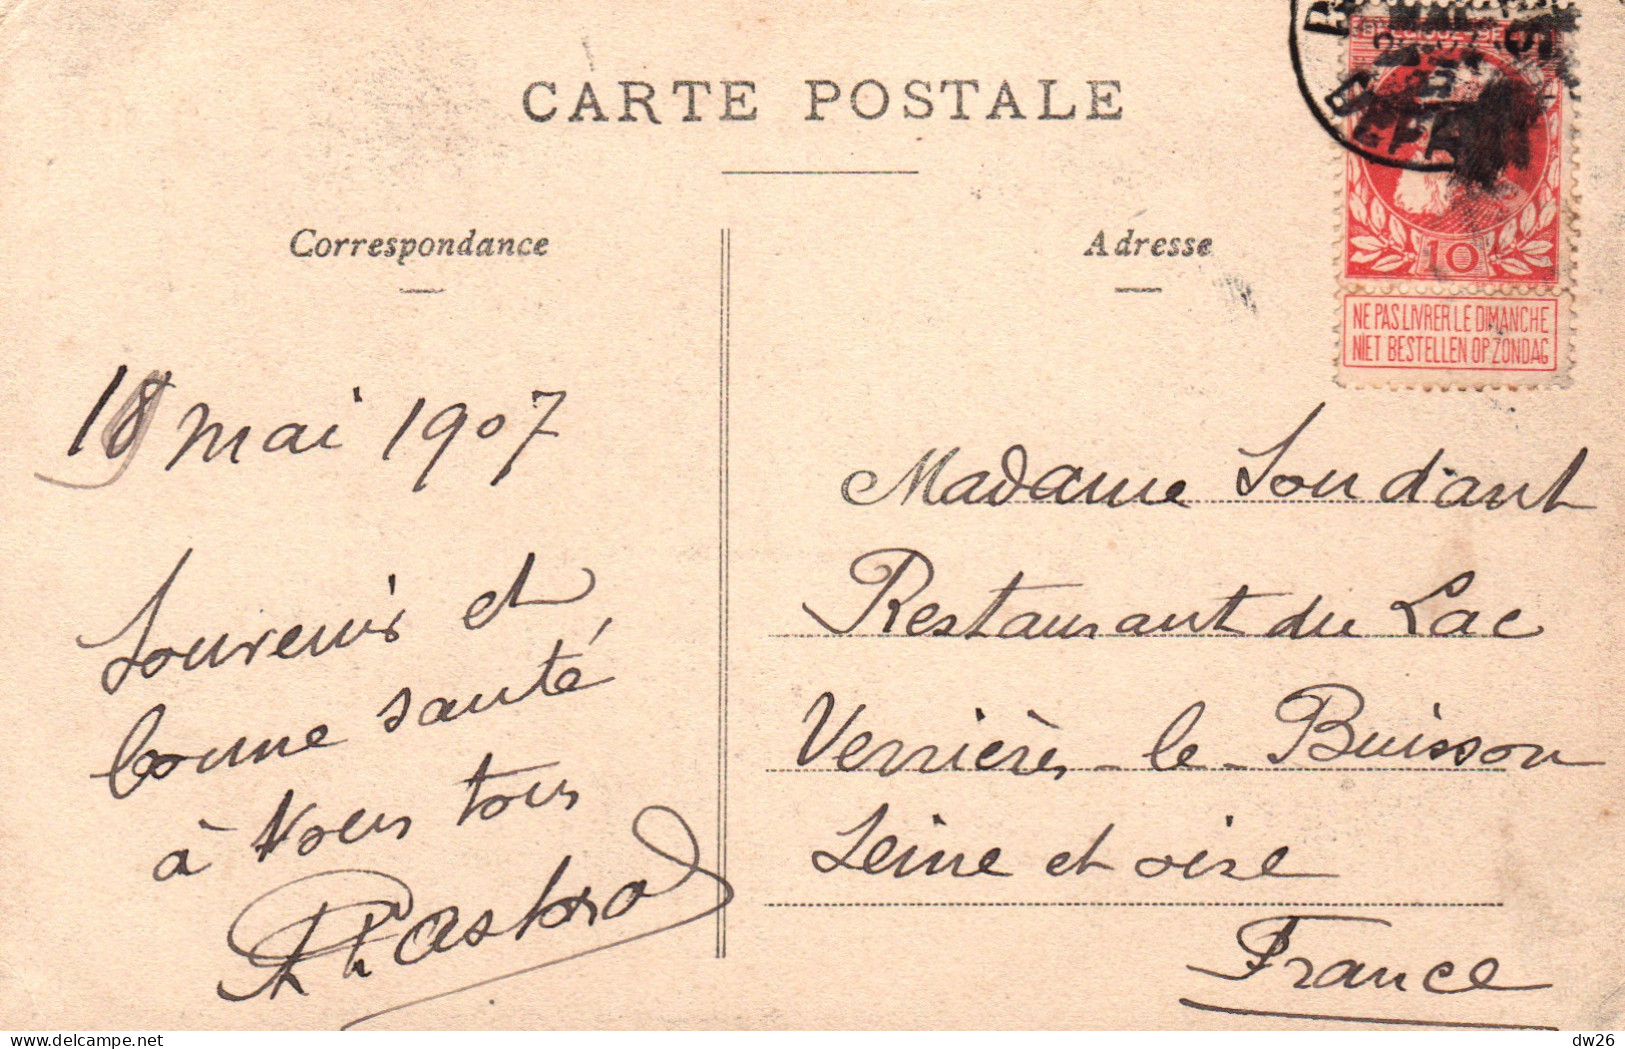 CARTE POSTALE
Correspondance
Adresse
BELGIQUE
10
NE PAS LIVRER LE DIMANCHE
NIET BESTELLEN OP ZONDAG
DEPART
18 mai 1907
Souvenir et
bonne santé,
à Vous tous
Madame Soudant
Restaurant du Lac
Verrières-le-Buisson
Seine et oise
France
dw26